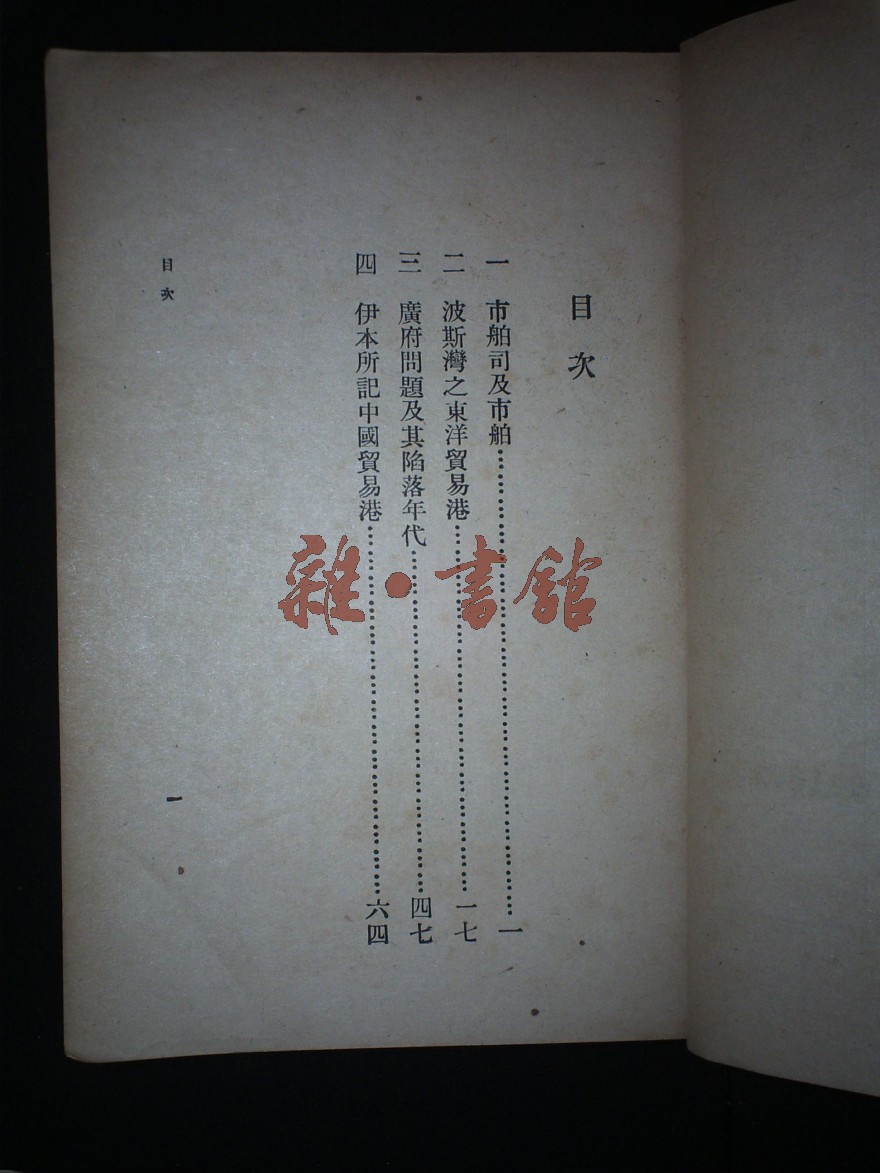 目次
一 市舶司及市舶……………………一
二 波斯灣之東洋貿易港……………………一七
三 廣府問題及其陷落年代……………………四七
四 伊本所記中國貿易港……………………六四
目次
一
雜·書館